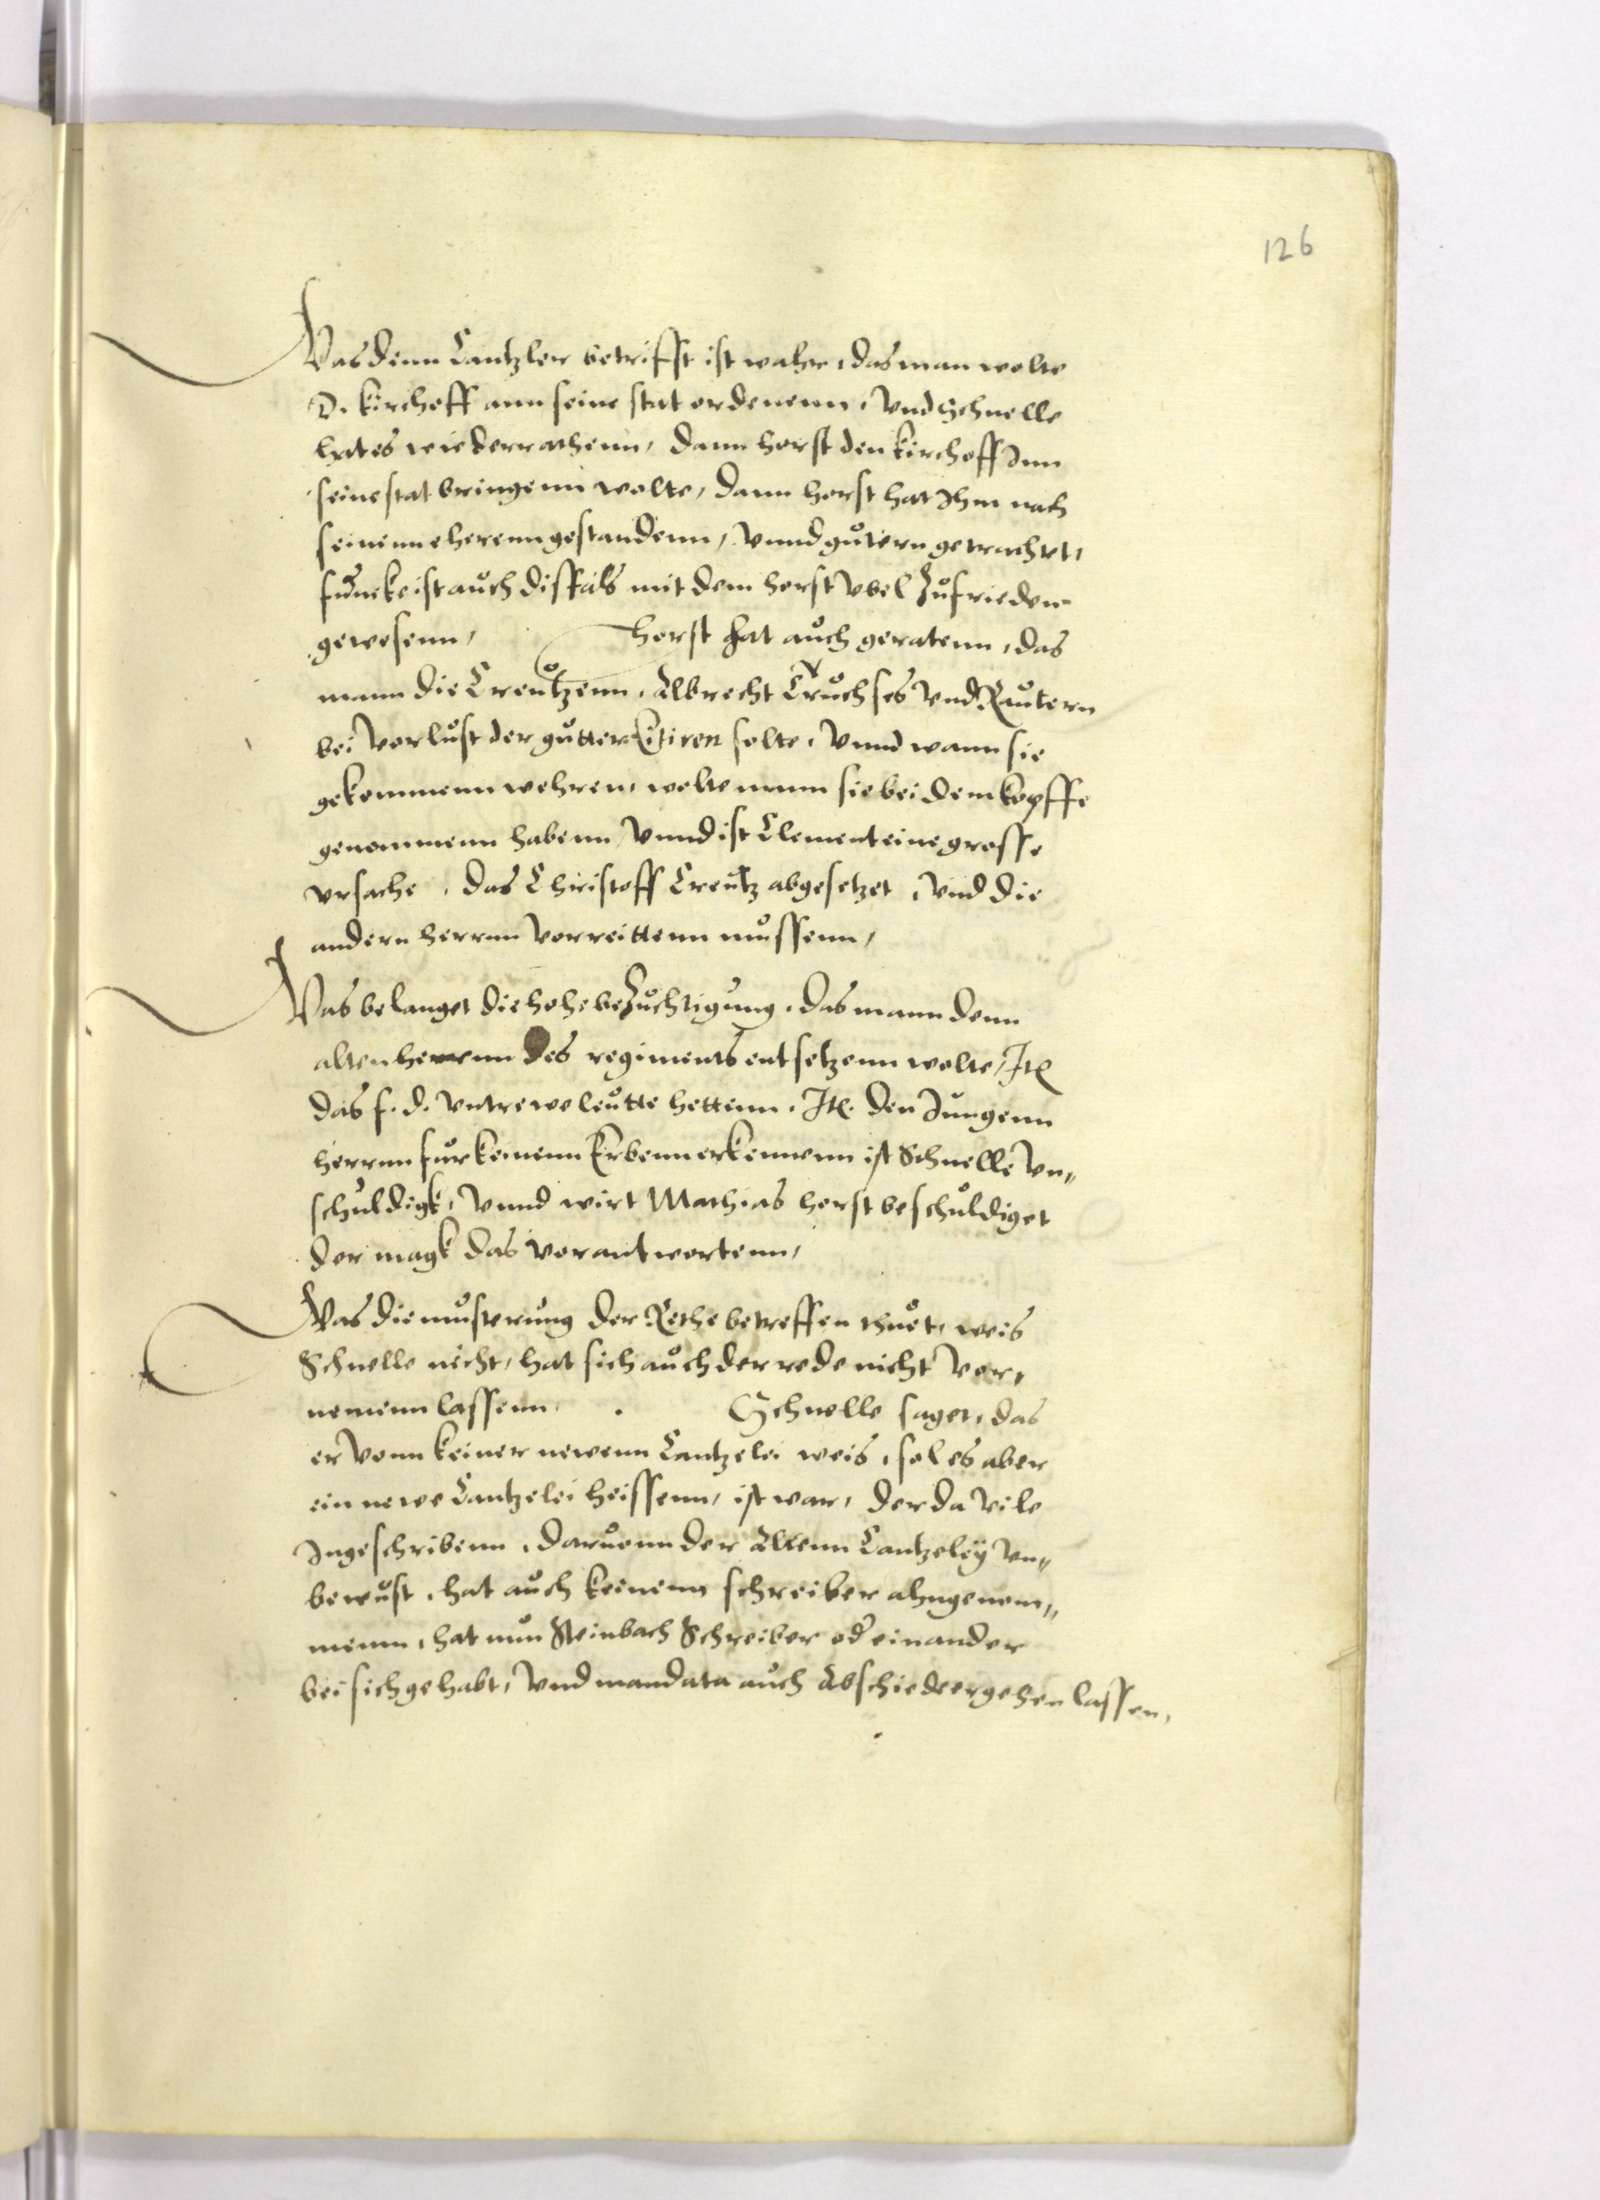 126
Was denn Cantzler betrifft ist wahr, das man wolte
D. Kirchoff ann seine stat ordenenn, vnd Schnelle
hat es wiederrathenn, dann horst den Kirchoff Inn
seine stat bringenn wolte, dann horst hat Ihm nach
seinenn eherenn gestandenn, vnnd gütern getrachtet,
funcke ist auch disfals mit dem horst vbel Zufrieden
gewesenn, horst hat auch geratenn, das
mann die Creutzenn, Albrecht Truchses vnd Rautern
bei vorlust der gutter Citiren solte, vnnd wann sie
gekommenn wehren, wolte mann sie bei dem kopffe
genommenn habenn, vnnd ist Clement eine grosse
vrsache, das Christoff Creutz abgesetzet, vnd die
andern herrnn vorreittenn mussenn,
Was belanget die hohe beZuchtigung, das mann denn
alten herrenn des regiments entsetzenn wolte, Itē
das f. d. vntrewe leutte hettenn, Itē. den Jungenn
herrnn fur keinenn Erbenn erkennenn ist Schnelle vn„
schuldigk, vnnd wirt Mathias horst beschuldiget
der magk das vorantwortenn,
Was die musterung der Rethe betreffen thuet, weis
Schnelle nicht, hat sich auch der rede nicht vor„
nemenn lassenn. Schnelle saget, das
er vonn keiner newenn Cantzelei weis, sol es aber
ein newe Cantzelei heissenn, ist war, der da vile
Ingeschribenn, daruonn der Altenn Cantzeleÿ vn„
bewust, hat auch keinenn schreiber ahngenom„
menn, hat nun Steinbach Schreiber oder ein ander
bei sich gehabt, vnd mandata auch Abschiede ergehen lassen,